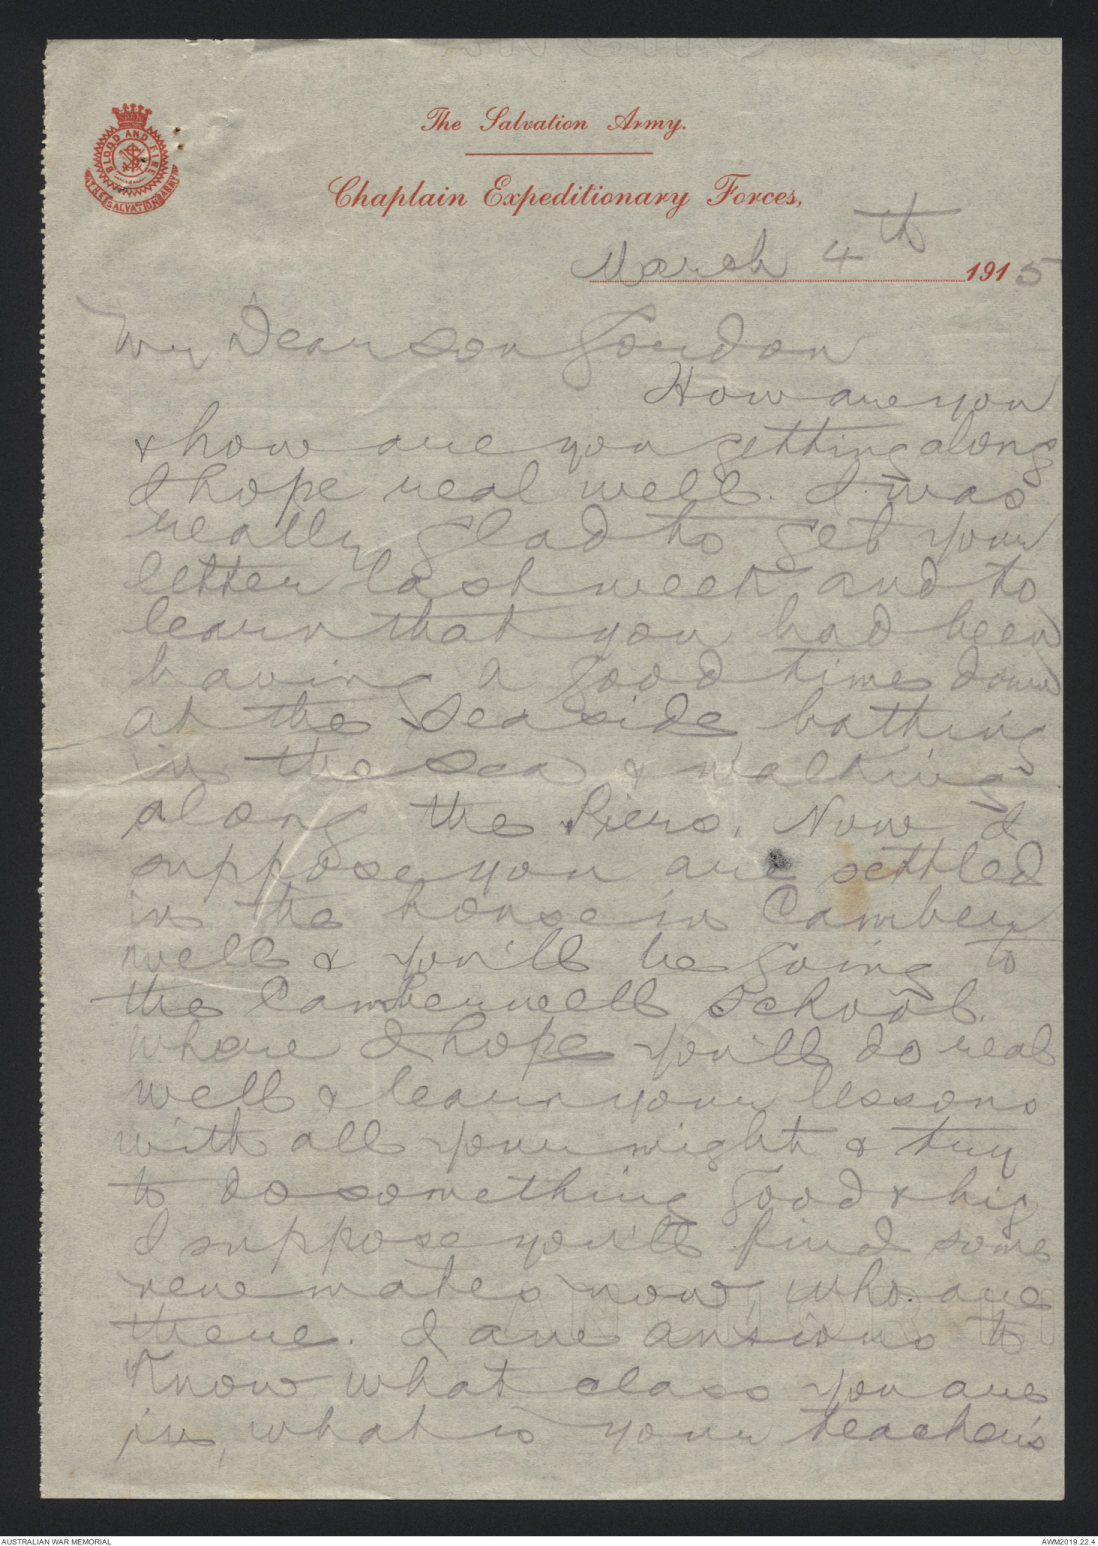 The Salvation Army.
BLOOD AND FIRE
THE SALVATION ARMY
Chaplain Expeditionary Forces,
March 4th 1915
My Dear son Gordon
How are you
& how are you getting along
I hope real well. I was
really glad to get your
letter last week and to
learn that you had been
having a good time down
at the Seaside bathing
in the sea & walking
along the Piers. Now I
suppose you are settled
in the house in Camber
well & you'll be going to
the Camberwell School.
Where I hope you'll do real
well & learn your lessons
with all your might & try
to do something good & big
I suppose you'll find some
new mates now, who are
there. I am anxious to
know what class you are
in, what is your teacher's
AUSTRALIAN WAR MEMORIAL
AWM2019.22.4